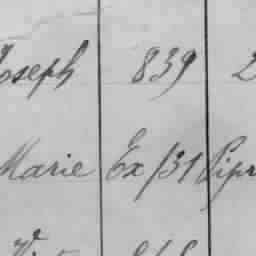 Joseph 839 2
Marie Ex/31 Pipr